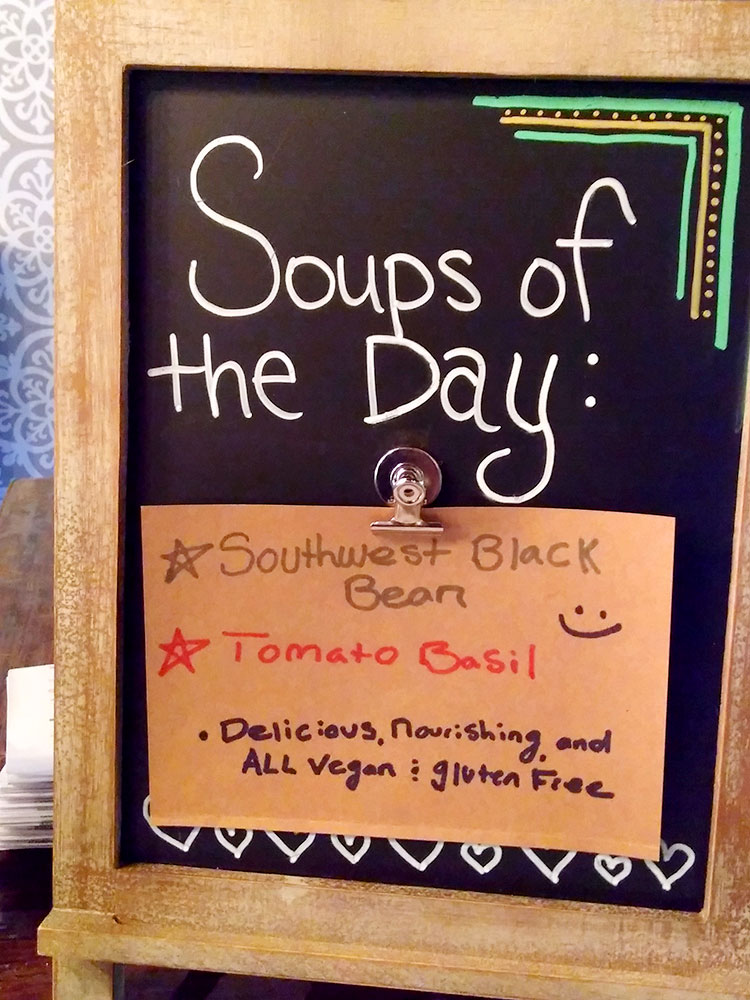 Soups of
the Day:
☆ Southwest Black
Bean
☆ Tomato Basil
• Delicious, Nourishing, and
ALL Vegan & gluten Free